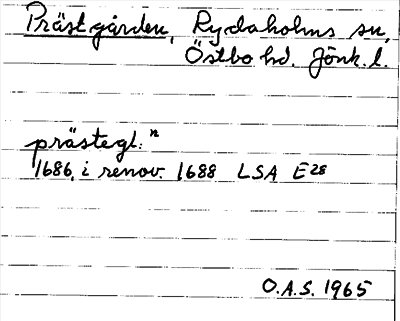 Prästgården, Rydaholms sn,
Östbo hd. Jönk. l.
prästegl. n
1686, i renov. 1688 LSA E28
O.A.S. 1965